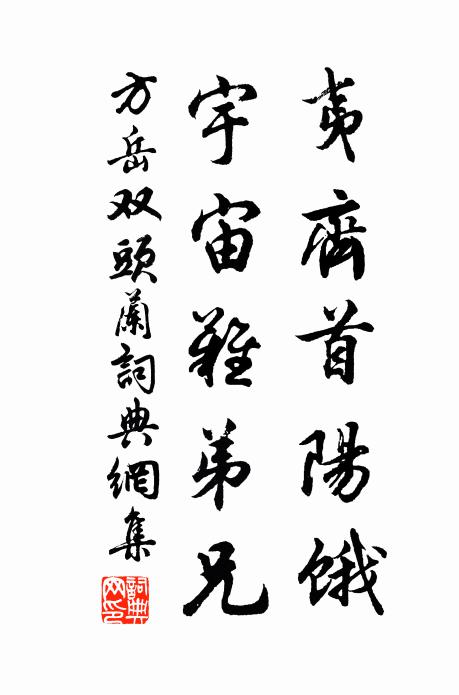 夷齊首陽餓
宇宙難弟兄
方岳双頭蘭詞典網集
詞典網印